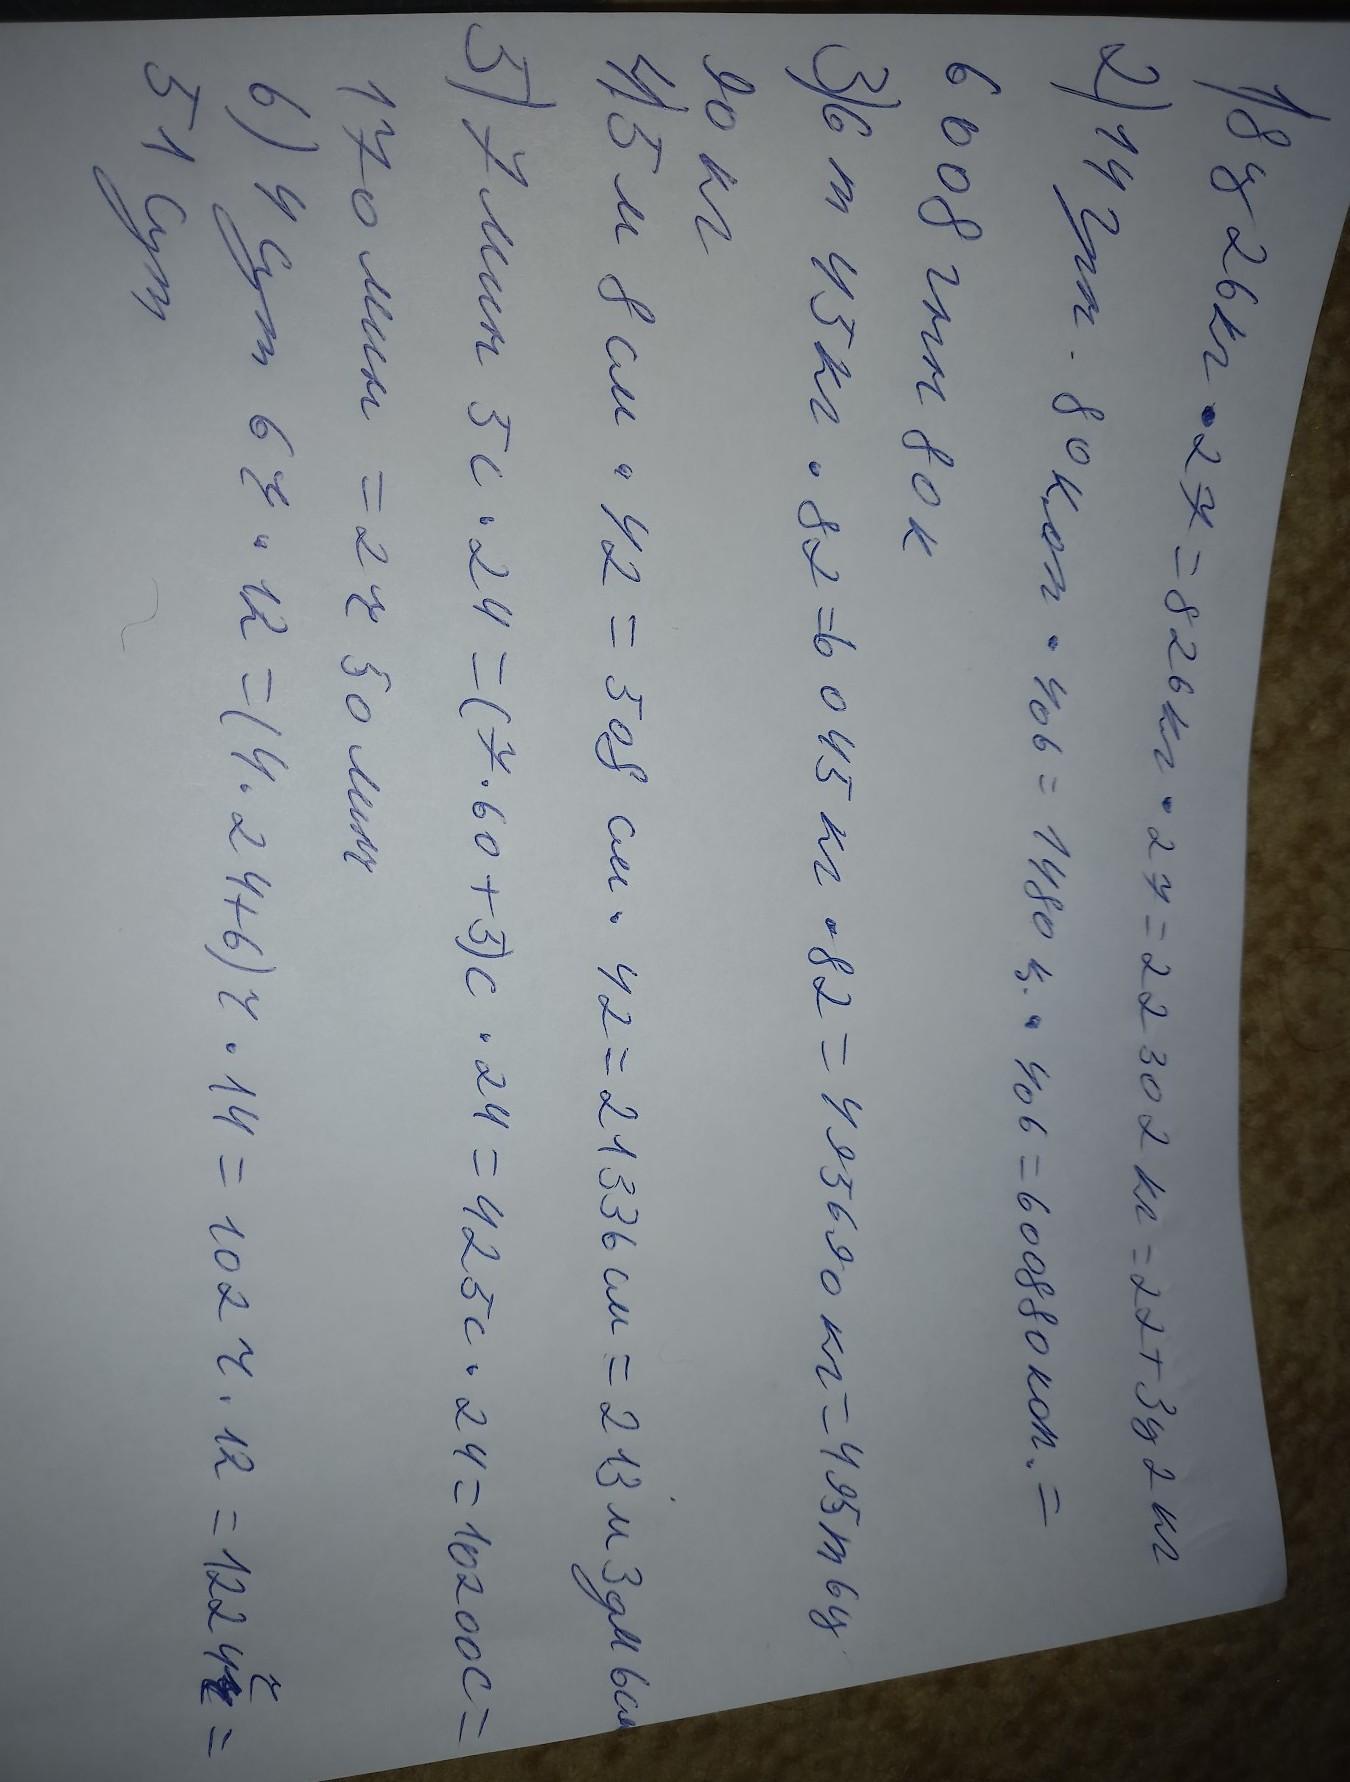 1) 8ц 26кг · 27 = 826кг · 27 = 22302кг = 22т 3ц 2кг
2) 14 грн. 80 коп · 406 = 1480 к. · 406 = 600880 коп. =
6008 грн 80 к
3) 6 т 45 кг · 82 = 6045 кг · 82 = 495690 кг = 495т 6ц
90 кг
4) 5 м 8 см · 42 = 508 см · 42 = 21336 см = 213 м 3дм 6см
5) 7 мин 5с · 24 = (7 · 60 + 5)с · 24 = 425с · 24 = 10200с =
170 мин = 2ч 50 мин
6) 4 сут 6ч · 12 = (4 · 24 + 6)ч · 14 = 102ч · 12 = 1224ч =
51 сут